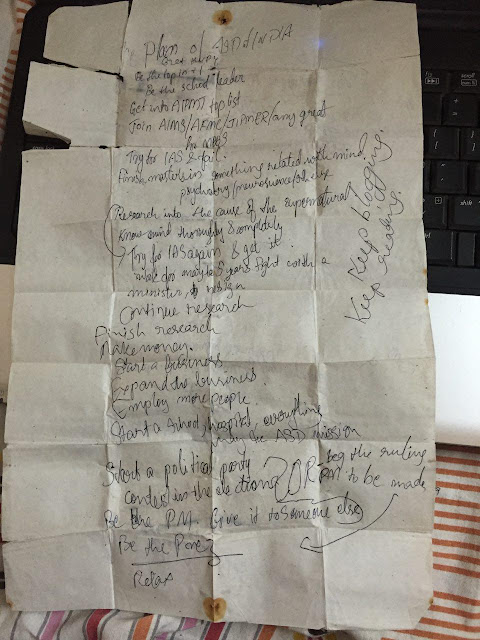 The Plan of ASD of INDIA
Be the top in +1
Be the school leader
Get into AIPMT top list
Join AIMS/AFMC/JIPMER/any great
Try for IAS & fail.
Finish masters in something related with mind
psychiatry/neuroscience/
Research into the cause of the supernatural
Know mind thoroughly & completely
Try for IAS again & get it
work for maybe 5 years fight with a
minister, & resign
Continue research
Finish research
Make money.
Start a business
Expand the business
Employ more people
Start a school, hospital, everything
under the ASD mission
Start a political party
Contest in the elections
OR
beg the ruling
PM to be made
Be the PM. Give it to someone else
Be the
Relax
Keep blogging.
Keep reading.